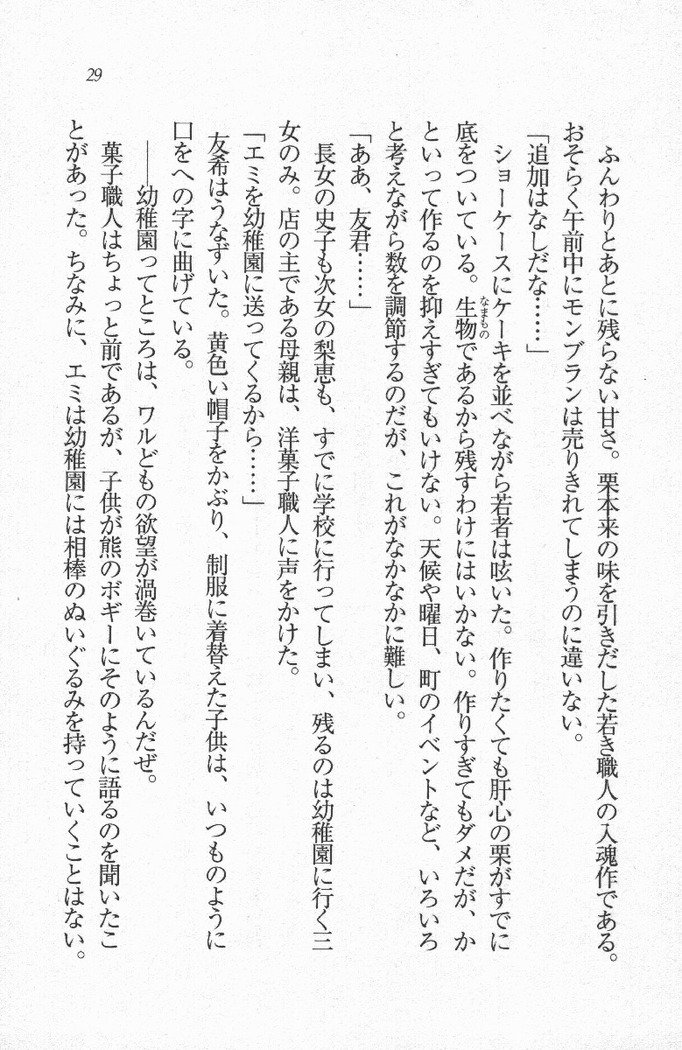 29
ふんわりとあとに残らない甘さ。栗本来の味を引きだした若き職人の入魂作である。
おそらく午前中にモンブランは売りきれてしまうのに違いない。
「追加はなしだな……」
ショーケースにケーキを並べながら若者は呟いた。作りたくても肝心の栗がすでに
底をついている。生物なまものであるから残すわけにはいかない。作りすぎてもダメだが、か
といって作るのを抑えすぎてもいけない。天候や曜日、町のイベントなど、いろいろ
と考えながら数を調節するのだが、これがなかなかに難しい。
「ああ、友君……」
長女の史子も次女の梨恵も、すでに学校に行ってしまい、残るのは幼稚園に行く三
女のみ。店の主である母親は、洋菓子職人に声をかけた。
「エミを幼稚園に送ってくるから……」
友希はうなずいた。黄色い帽子をかぶり、制服に着替えた子供は、いつものように
口をへの字に曲げている。
――幼稚園ってところは、ワルどもの欲望が渦巻いているんだぜ。
菓子職人はちょっと前であるが、子供が熊のボギーにそのように語るのを聞いたこ
とがあった。ちなみに、エミは幼稚園には相棒のぬいぐるみを持っていくことはない。